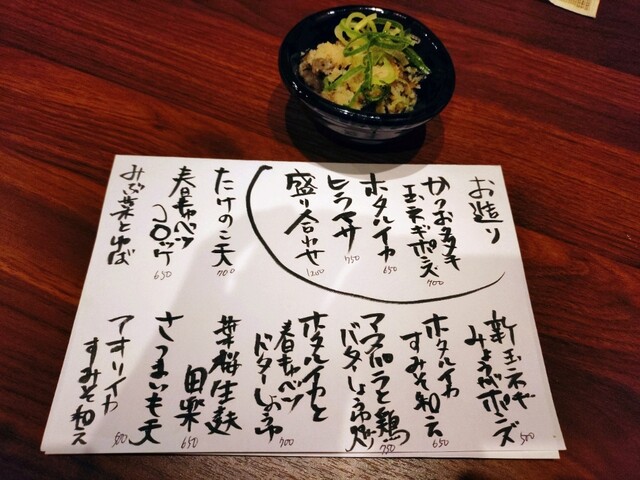 お造り
かつおタタキ
玉ネギポンズ
700
ホタルイカ
650
ヒラマサ
750
盛り合わせ
1200
たけのこ天
700
春キャベツ
コロッケ
650
みぶ菜とゆば
新玉ネギ
みょうがポンズ
500
ホタルイカ
すみそ和え
650
と鶏
バターしょうゆ
750
ホタルイカと
春キャベツ
バターしょうゆ
700
葉桜生麸
田楽
650
さつまいも天
アオリイカ
すみそ和え
500